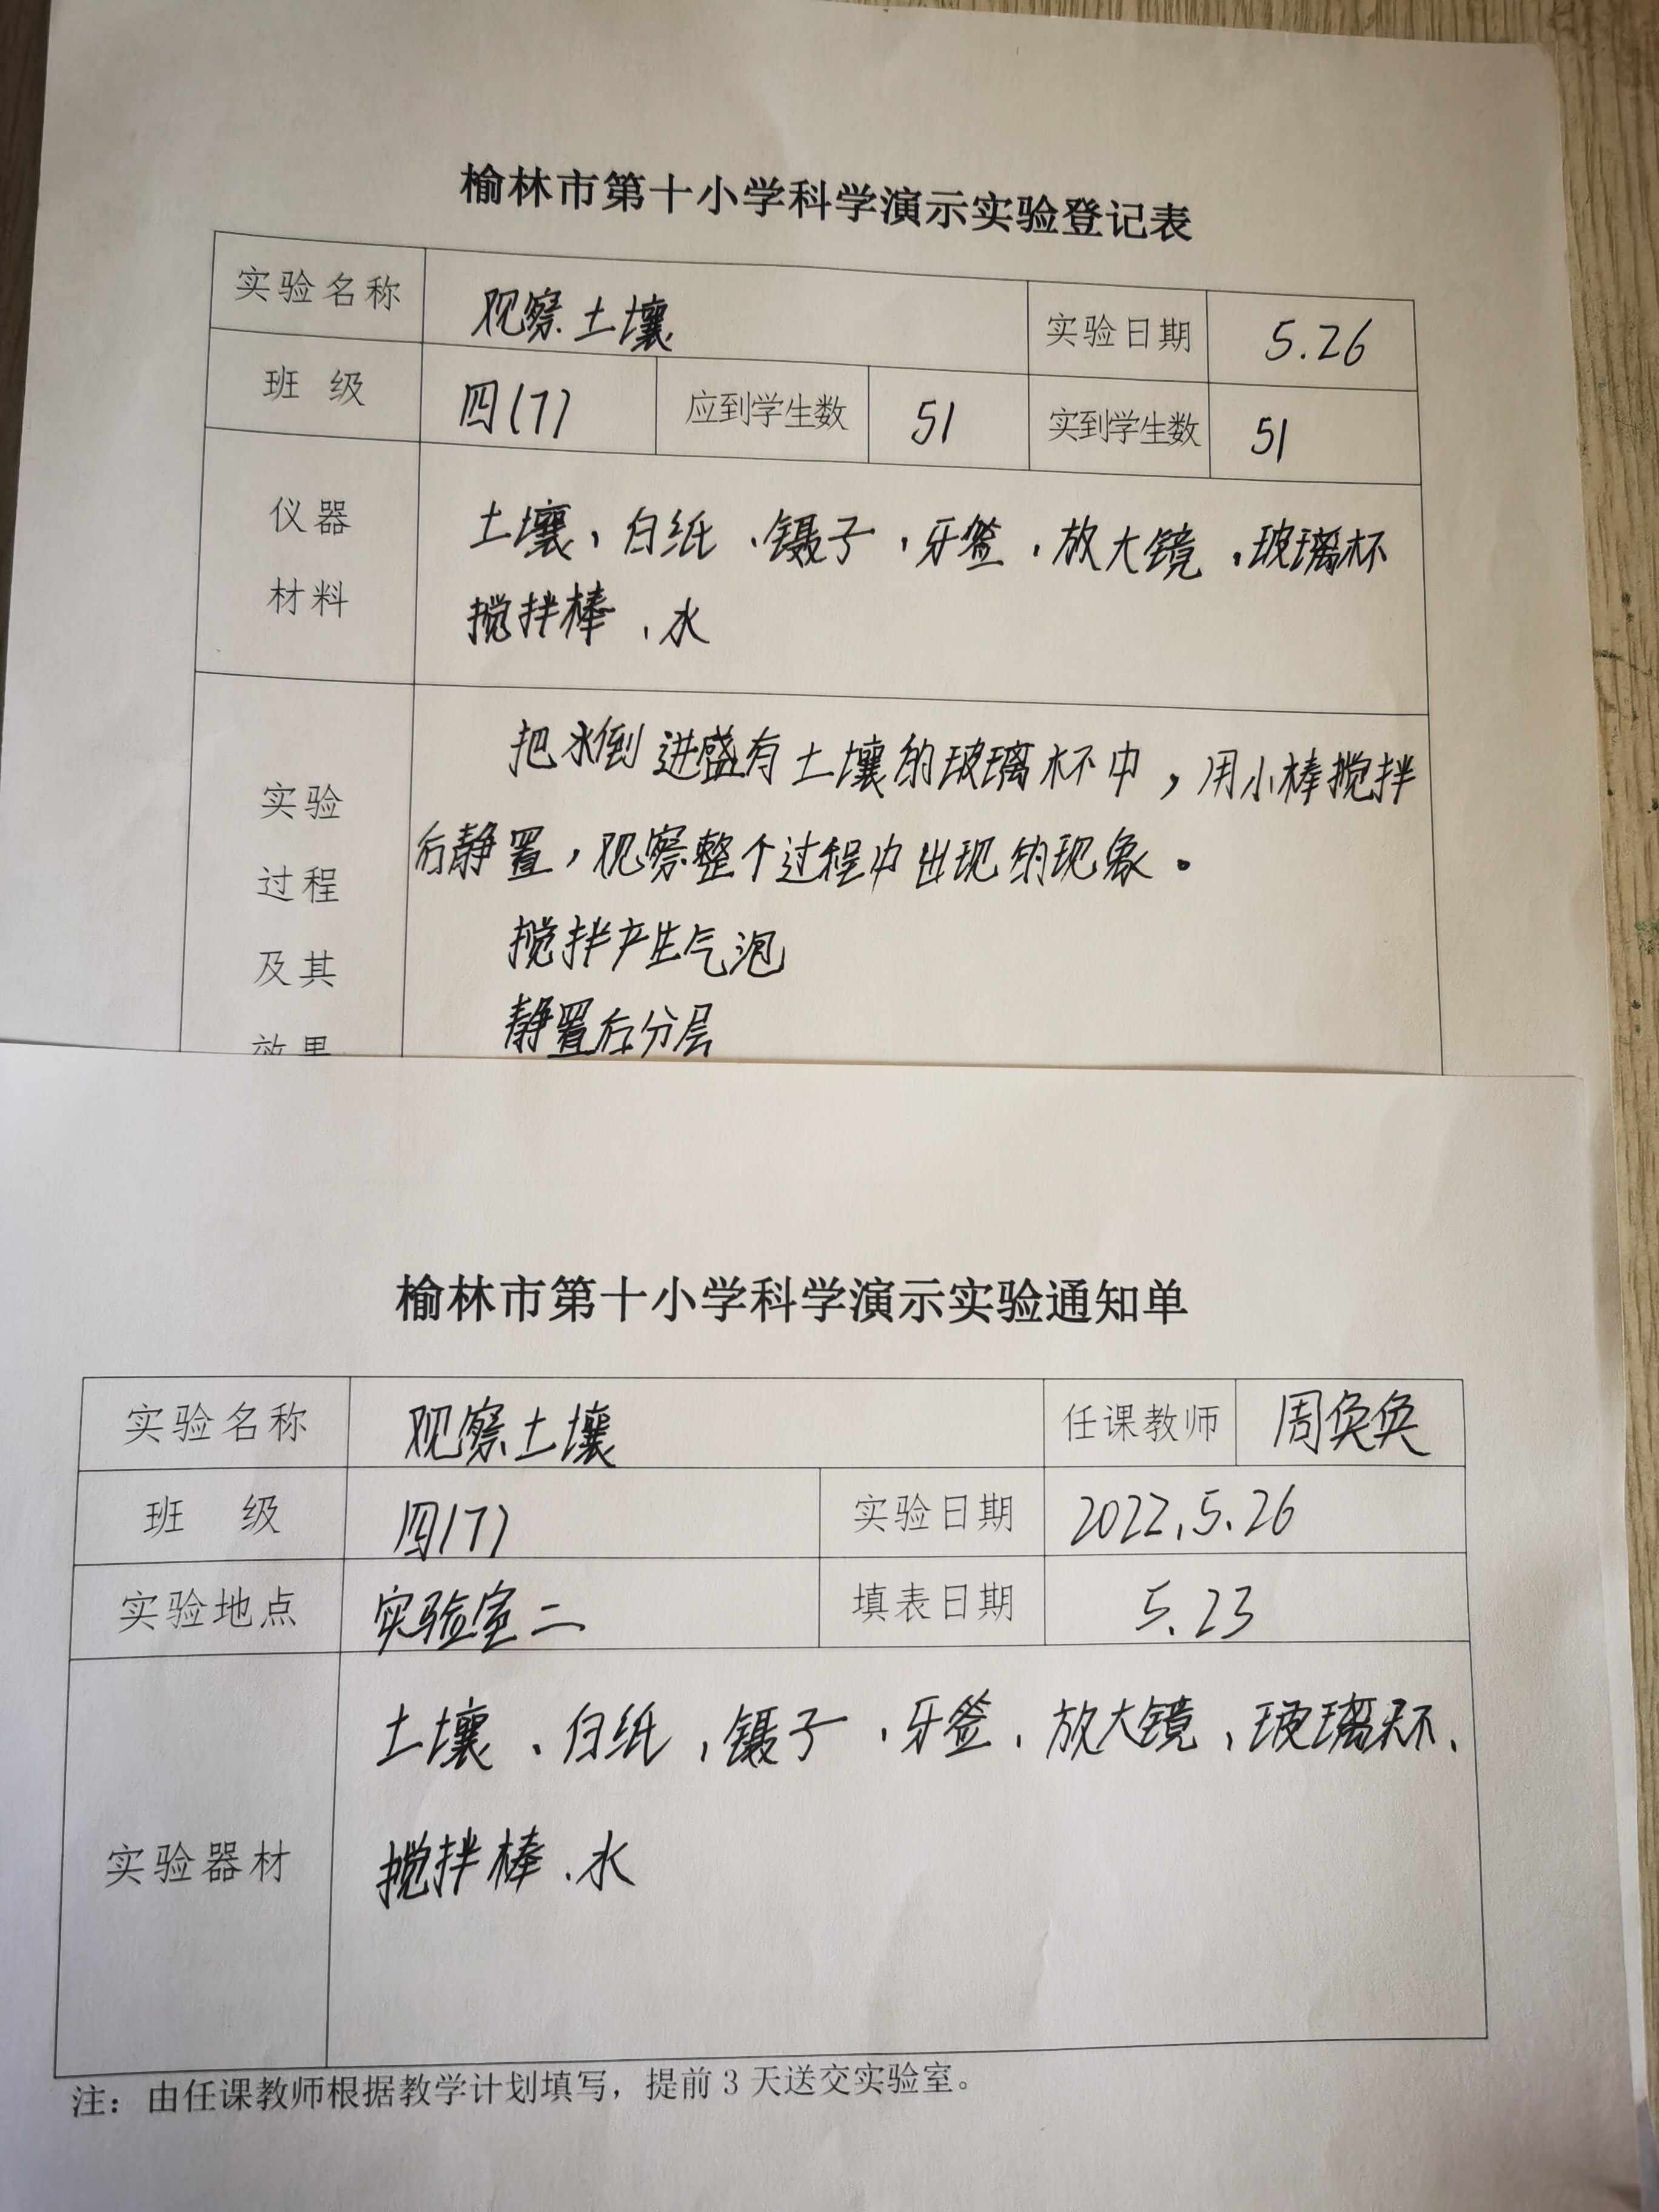 榆林市第十小学科学演示实验登记表
实验名称 观察土壤 实验日期 5.26
班 级 四(7) 应到学生数 51 实到学生数 51
仪器
材料
土壤、白纸、镊子、牙签、放大镜、玻璃杯
搅拌棒、水
实验
过程
及其
效果
把水倒进盛有土壤的玻璃杯中，用小棒搅拌
后静置，观察整个过程中出现的现象。
搅拌产生气泡
静置后分层
榆林市第十小学科学演示实验通知单
实验名称 观察土壤 任课教师 周奂奂
班 级 四(7) 实验日期 2022.5.26
实验地点 实验室二 填表日期 5.23
实验器材
土壤、白纸、镊子、牙签、放大镜、玻璃杯、
搅拌棒、水
注：由任课教师根据教学计划填写，提前3天送交实验室。